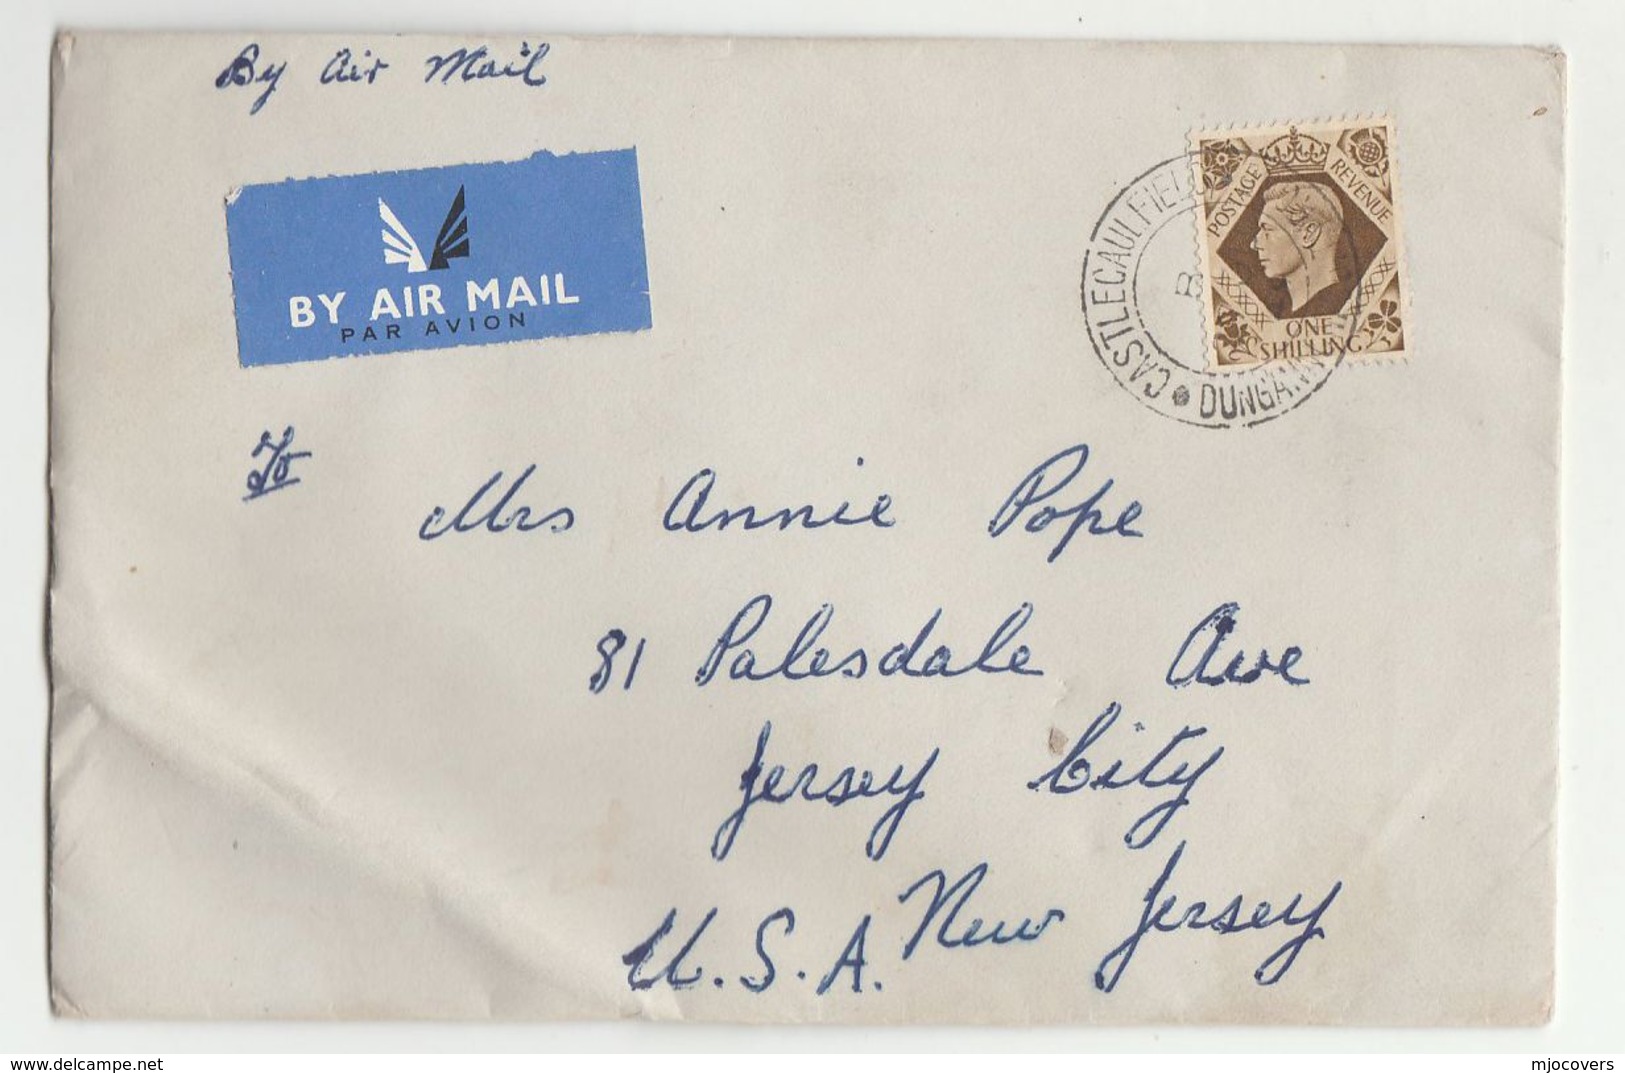 By Air Mail
BY AIR MAIL
PAR AVION
POSTAGE REVENUE
ONE SHILLING
CASTLECAULFIELD
DUNGANNON
To
Mrs Annie Pope
81 Palesdale Ave
Jersey City
New Jersey
U.S.A.
delcampe.net
mjocovers